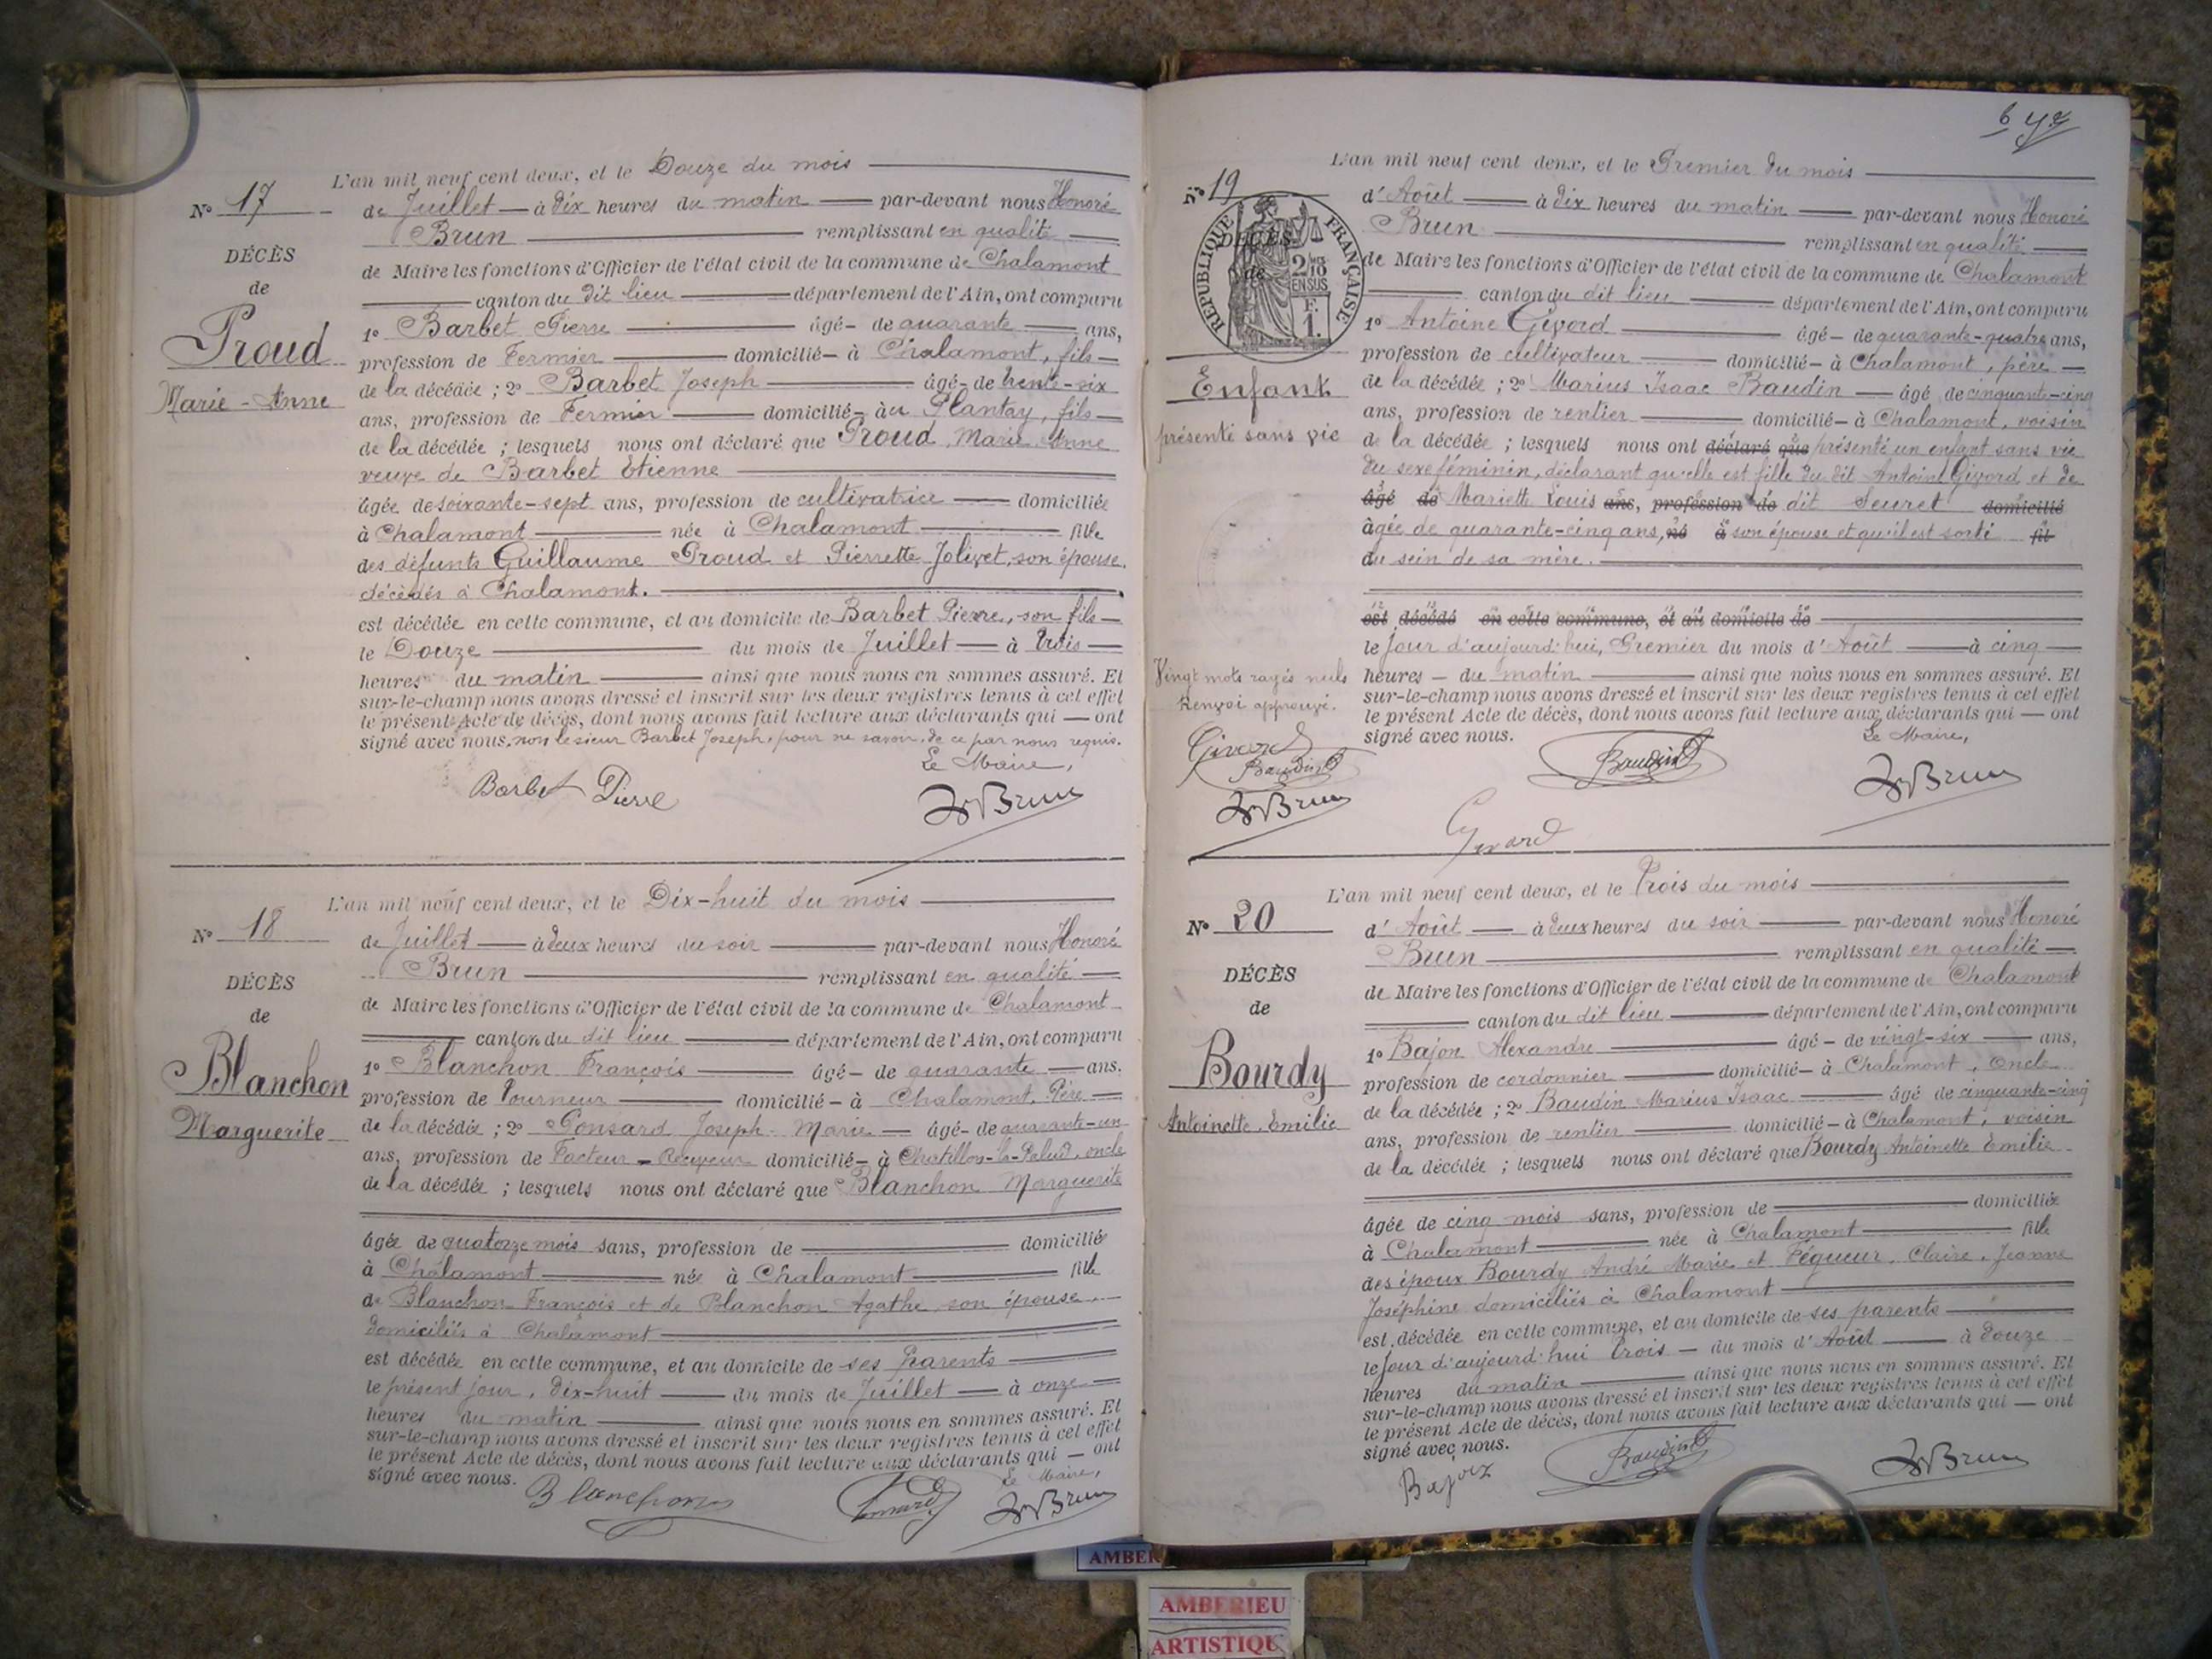 L'an mil neuf cent deux, et le Douze du mois
N° 17
de Juillet — à dix heures du matin — par-devant nous Honoré
Brun remplissant en qualité
DÉCÈS
de Maire les fonctions d'Officier de l'état civil de la commune de Chalamont
de
canton du dit lieu département de l'Ain, ont comparu
Proud
1° Barbet Pierre âgé - de quarante ans,
profession de Fermier domicilié - à Chalamont, fils
Marie-Anne
de la décédée ; 2° Barbet Joseph âgé - de trente-six
ans, profession de Fermier domicilié - au Plantay, fils
de la décédée ; lesquels nous ont déclaré que Proud Marie Anne
veuve de Barbet Etienne
âgée de soixante-sept ans, profession de cultivatrice domiciliée
à Chalamont née à Chalamont fille
des défunts Guillaume Proud et Pierrette Jolivet, son épouse,
décédés à Chalamont.
est décédée en cette commune, et au domicile de Barbet Pierre, son fils
le Douze du mois de Juillet — à trois
heures du matin ainsi que nous nous en sommes assuré. Et
sur-le-champ nous avons dressé et inscrit sur les deux registres tenus à cet effet
le présent Acte de décès, dont nous avons fait lecture aux déclarants qui — ont
signé avec nous, non le sieur Barbet Joseph, pour ne savoir, de ce par nous requis.
Le Maire,
Barbet Pierre
Brun
L'an mil neuf cent deux, et le Dix-huit du mois
N° 18
de Juillet — à deux heures du soir par-devant nous Honoré
Brun remplissant en qualité
DÉCÈS
de Maire les fonctions d'Officier de l'état civil de la commune de Chalamont
de
canton du dit lieu département de l'Ain, ont comparu
Blanchon
1° Blanchon François âgé - de quarante ans,
profession de Tourneur domicilié - à Chalamont, Père
Marguerite
de la décédée ; 2° Ponsard Joseph-Marie âgé - de quarante-un
ans, profession de Facteur-Receveur domicilié - à Chatillon-la-Palud, oncle
de la décédée ; lesquels nous ont déclaré que Blanchon Marguerite
âgée de quatorze mois sans, profession de domiciliée
à Chalamont née à Chalamont fille
de Blanchon François et de Blanchon Agathe, son épouse,
domiciliés à Chalamont
est décédée en cette commune, et au domicile de ses Parents
le présent jour, dix-huit du mois de Juillet — à onze
heures du matin ainsi que nous nous en sommes assuré. Et
sur-le-champ nous avons dressé et inscrit sur les deux registres tenus à cet effet
le présent Acte de décès, dont nous avons fait lecture aux déclarants qui — ont
signé avec nous.
Le Maire,
Blanchon
Brun
6
L'an mil neuf cent deux, et le Premier du mois
N° 19
d'Août — à dix heures du matin — par-devant nous Honoré
Brun remplissant en qualité
RÉPUBLIQUE FRANÇAISE
2/10 EN SUS
F. 1.
DÉCÈS
de
de Maire les fonctions d'Officier de l'état civil de la commune de Chalamont
canton du dit lieu département de l'Ain, ont comparu
1° Antoine Givord âgé - de quarante-quatre ans,
profession de cultivateur domicilié - à Chalamont, père
Enfant
de la décédée ; 2° Marius Isaac Baudin âgé de cinquante-cinq
ans, profession de rentier domicilié - à Chalamont, voisin
présenté sans vie
de la décédée ; lesquels nous ont déclaré que présenté un enfant sans vie
du sexe féminin, déclarant qu'elle est fille du dit Antoine Givord et de
âgé de Mariette Louis ans, profession de dit Seuret domicilié
âgée de quarante-cinq ans, né à son épouse et qu'il est sorti fil
du sein de sa mère.
est décédé en cette commune, et au domicile de
le jour d'aujourd'hui, Premier du mois d'Août à cinq
Vingt mots rayés nuls
heures — du matin ainsi que nous nous en sommes assuré. Et
Renvoi approuvé.
sur-le-champ nous avons dressé et inscrit sur les deux registres tenus à cet effet
le présent Acte de décès, dont nous avons fait lecture aux déclarants qui — ont
signé avec nous.
Le Maire,
Givord
Baudin
Brun
Baudin
Brun
Givord
L'an mil neuf cent deux, et le Trois du mois
N° 20
d'Août — à deux heures du soir par-devant nous Honoré
Brun remplissant en qualité
DÉCÈS
de Maire les fonctions d'Officier de l'état civil de la commune de Chalamont
de
canton du dit lieu département de l'Ain, ont comparu
Bourdy
1° Bajon Alexandre âgé - de vingt-six ans,
profession de cordonnier domicilié - à Chalamont, Oncle
Antoinette, Emilie
de la décédée ; 2° Baudin Marius Isaac âgé de cinquante-cinq
ans, profession de rentier domicilié - à Chalamont, voisin
de la décédée ; lesquels nous ont déclaré que Bourdy Antoinette Emilie
âgée de cinq mois sans, profession de domiciliée
à Chalamont née à Chalamont fille
des époux Bourdy André Marie et Péqueur, Claire, Jeanne
Joséphine domiciliés à Chalamont
est décédée en cette commune, et au domicile de ses parents
le jour d'aujourd'hui trois — du mois d'Août à douze
heures du matin ainsi que nous nous en sommes assuré. Et
sur-le-champ nous avons dressé et inscrit sur les deux registres tenus à cet effet
le présent Acte de décès, dont nous avons fait lecture aux déclarants qui — ont
signé avec nous.
Bajon
Baudin
Brun
AMBER
AMBERIEU
ARTISTIQU